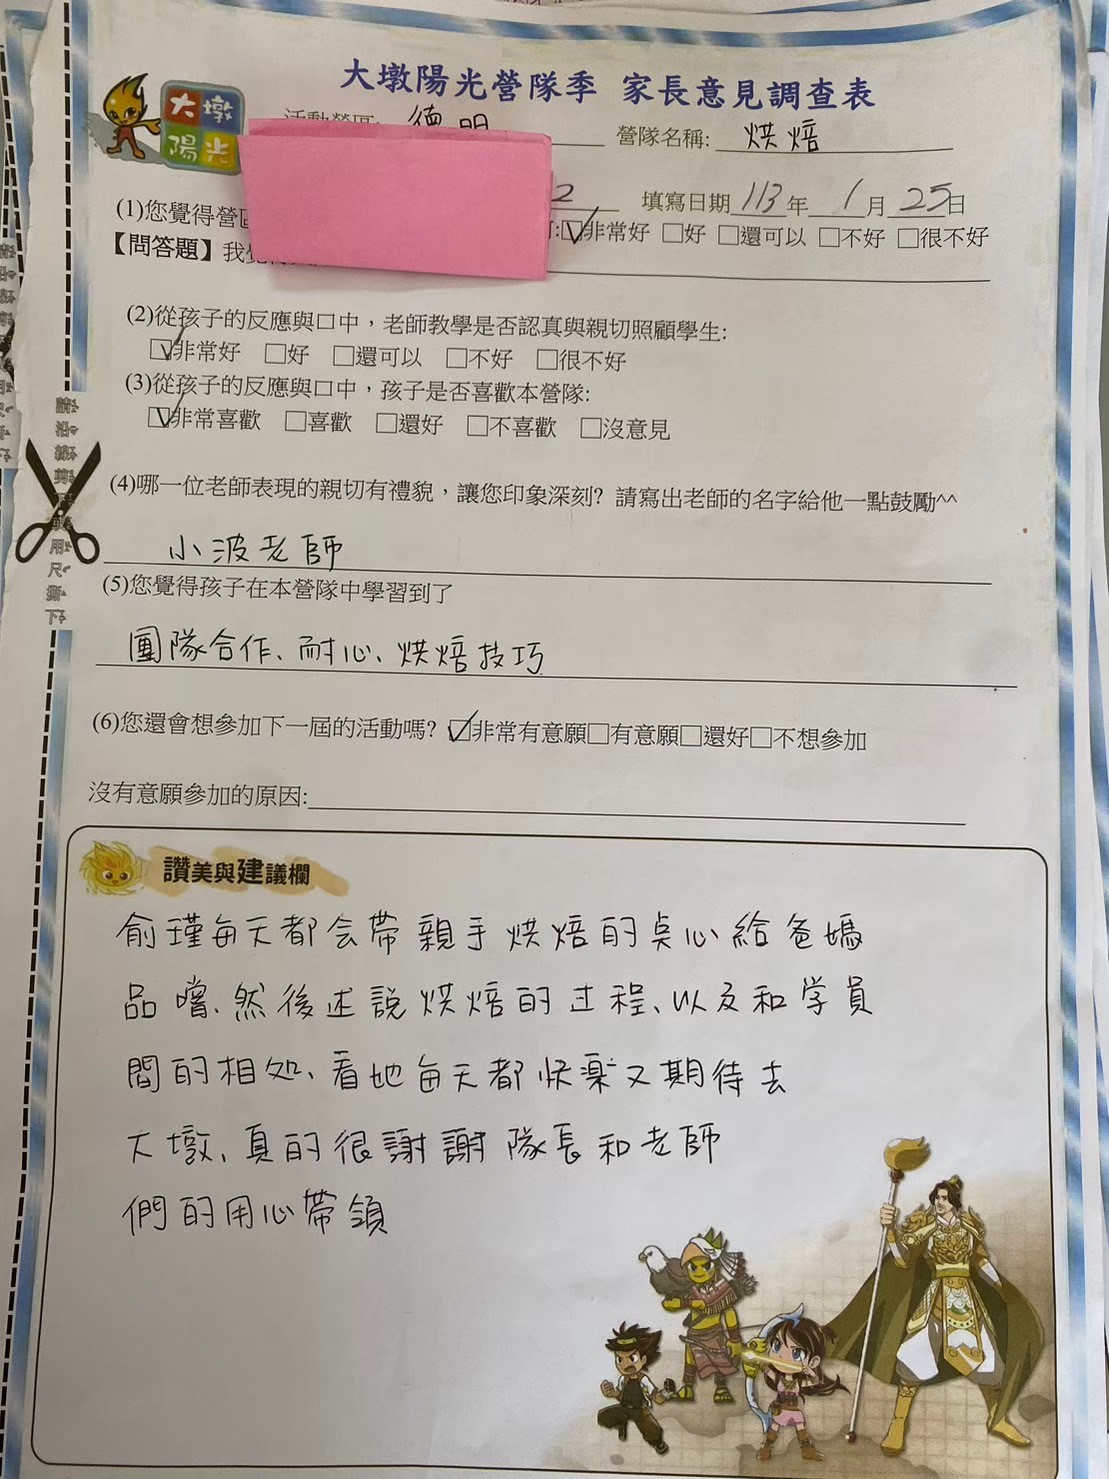 大墩陽光營隊季 家長意見調查表
大墩
陽光
活動營區: 德明
營隊名稱: 烘焙
2 填寫日期 113 年 1 月 25 日
(1)您覺得營區 ☑非常好 □好 □還可以 □不好 □很不好
【問答題】我覺得
(2)從孩子的反應與口中，老師教學是否認真與親切照顧學生:
☑非常好 □好 □還可以 □不好 □很不好
(3)從孩子的反應與口中，孩子是否喜歡本營隊:
☑非常喜歡 □喜歡 □還好 □不喜歡 □沒意見
(4)哪一位老師表現的親切有禮貌，讓您印象深刻? 請寫出老師的名字給他一點鼓勵^^
小波老師
(5)您覺得孩子在本營隊中學習到了
團隊合作、耐心、烘焙技巧
(6)您還會想參加下一屆的活動嗎? ☑非常有意願□有意願□還好□不想參加
沒有意願參加的原因:
讚美與建議欄
俞瑾每天都会帶親手烘焙的点心給爸媽
品嚐、然後述說烘焙的过程、以及和学員
間的相处、看她每天都快樂又期待去
大墩、真的很謝謝隊長和老師
們的用心帶領